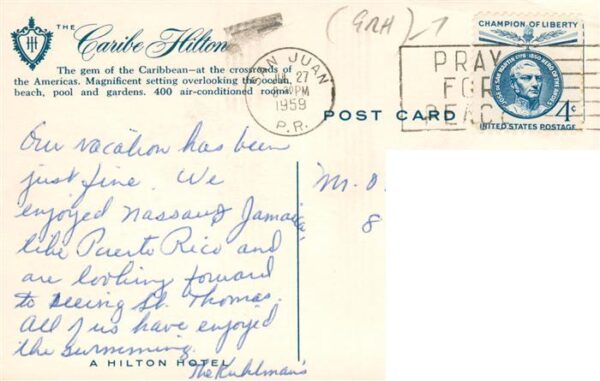 THE
Caribe Hilton
The gem of the Caribbean—at the crossroads of
the Americas. Magnificent setting overlooking the ocean,
beach, pool and gardens. 400 air-conditioned rooms.
(GRH)-7
SAN JUAN
27
PM
1959
P.R.
PRAY
FOR
PEACE
CHAMPION OF LIBERTY
JOSE DE SAN MARTIN 1778-1850 HERO OF THE ANDES
4¢
UNITED STATES POSTAGE
POST CARD
Our vacation has been
just fine. We
enjoyed Nassau & Jamaica,
like Puerto Rico and
are looking forward
to seeing St. Thomas.
All of us have enjoyed
the swimming.
The Kuhlman's
M.
8
A HILTON HOTEL